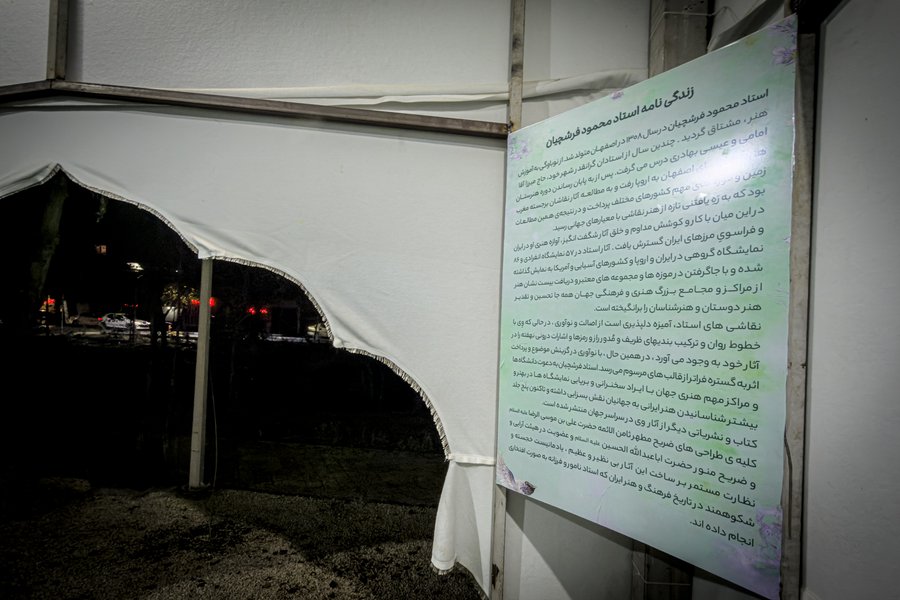 زندگی نامه استاد محمود فرشچیان
استاد محمود فرشچیان در سال ۱۳۰۸ در اصفهان متولد شد. از نوباوگی به آموزش
هنر، مشتاق گردید. چندین سال از استادان گرانقدر شهر خود، حاج میرزا آقا
امامی و عیسی بهادری درس می گرفت. پس از به پایان رساندن دوره هنرستان
اصفهان به اروپا رفت و به مطالعه آثار نقاشان برجسته مغرب
زمین و مهم کشورهای مختلف پرداخت و در نتیجه‌ی همین مطالعات
بود که به ره یافتنی تازه از هنر نقاشی با معیارهای جهانی رسید.
در این میان با کار و کوشش مداوم و خلق آثار شگفت انگیز، آوازه هنری او در ایران
و فراسوی مرزهای ایران گسترش یافت. آثار استاد در ۵۷ نمایشگاه انفرادی و ۸۶
نمایشگاه گروهی در ایران و اروپا و کشورهای آسیایی و آمریکا به نمایش گذاشته
شده و با جاگرفتن در موزه ها و مجموعه های معتبر و دریافت بیست نشان هنر
از مراکز و مجامع بزرگ هنری و فرهنگی جهان همه جا تحسین و تقدیر
هنر دوستان و هنرشناسان را برانگیخته است.
نقاشی های استاد، آمیزه دلپذیری است از اصالت و نوآوری، در حالی که وی با
خطوط روان و ترکیب بندیهای ظریف و مُدور راز و رمزها و اشارات درونی نهفته را در
آثار خود به وجود می آورد، در همین حال، با نوآوری در گزینش موضوع و پرداخت
اثر به گستره فراتر از قالب های مرسوم می رسد. استاد فرشچیان به دعوت دانشگاه ها
و مراکز مهم هنری جهان با ایراد سخنرانی و برپایی نمایشگاه ها در بهتر و
بیشتر شناسانیدن هنر ایرانی به جهانیان نقش بسزایی داشته و تاکنون پنج جلد
کتاب و نشریاتی دیگر از آثار وی در سراسر جهان منتشر شده است.
کلیه ی طراحی های ضریح مطهر ثامن الائمه حضرت علی بن موسی الرضا علیه السلام
و ضریح منور حضرت اباعبدالله الحسین علیه السلام و عضویت در هیئت آرایی و
نظارت مستمر بر ساخت این آثار بی نظیر و عظیم، یادمانیست خجسته و
شکوهمند در تاریخ فرهنگ و هنر ایران که استاد نامور و فرزانه به صورت افتخاری
انجام داده اند.